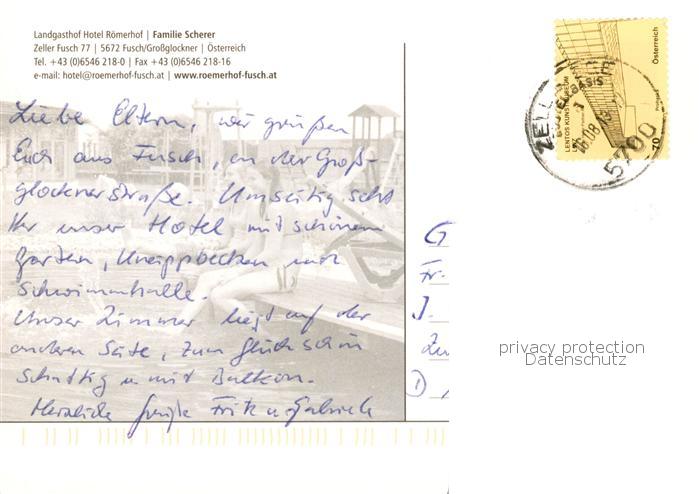 Landgasthof Hotel Römerhof | Familie Scherer
Zeller Fusch 77 | 5672 Fusch/Großglockner | Österreich
Tel. +43 (0)6546 218-0 | Fax +43 (0)6546 218-16
e-mail: hotel@roemerhof-fusch.at | www.roemerhof-fusch.at
Liebe Eltern, wir grüßen
Euch aus Fusch, an der Groß-
glocknerstraße. Umseitig seht
Ihr unser Hotel mit schönem
Garten, Kneippbecken und
Schwimmhalle.
Unser Zimmer liegt auf der
anderen Seite, zum Glück schön
schattig u mit Balkon.
Herzliche Grüße Fritz u Gabriele
LENTOS KUNSTMUSEUM
Österreich
70
ZELL
BASIS
5700
G
Fr.
J.
D
privacy protection
Datenschutz